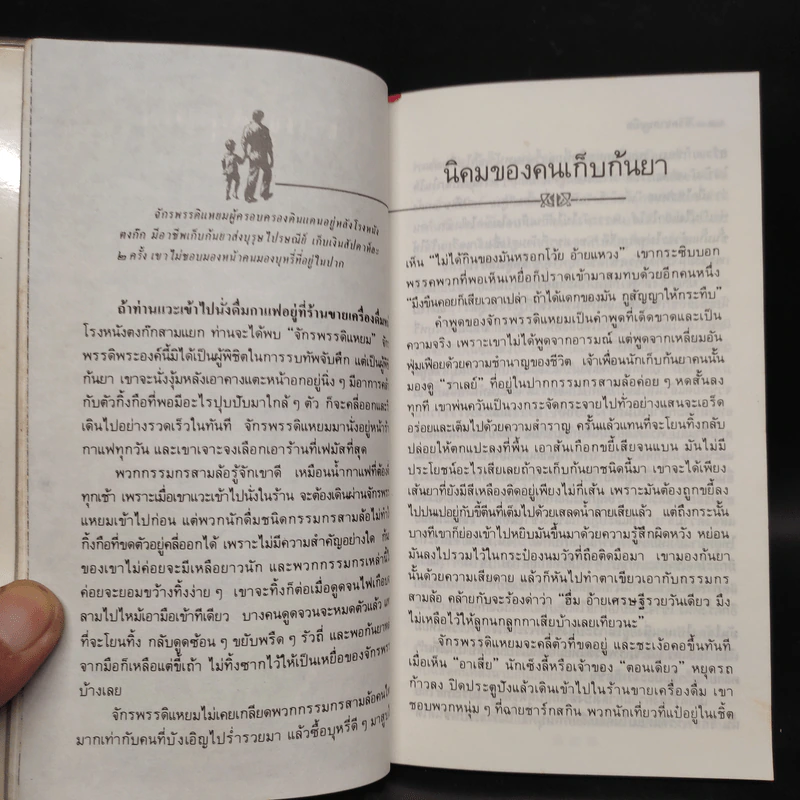 จักรพรรดิแหยมผู้ครอบครองดินแดนอยู่หลังโรงหนัง
ตงก๊ก มีอาชีพเก็บก้นยาส่งบุรุษไปรษณีย์ เก็บเงินสัปดาห์ละ
๒ ครั้ง เขาไม่ชอบมองหน้าคนมองบุหรี่ที่อยู่ในปาก
ถ้าท่านแวะเข้าไปนั่งดื่มกาแฟอยู่ที่ร้านขายเครื่องดื่ม
โรงหนังตงก๊กสามแยก ท่านจะได้พบ “จักรพรรดิแหยม”
พรรดิพระองค์นี้มิได้เป็นผู้พิชิตในการรบทัพจับศึก แต่เป็น
ก้นยา เขาจะนั่งงุ้มหลังเอาคางแตะหน้าอกอยู่นิ่ง ๆ มีอาการ
กับตัวกิ้งกือที่พอมีอะไรปุบปับมาใกล้ ๆ ตัว ก็จะคลี่ออก
เดินไปอย่างรวดเร็วในทันที จักรพรรดิแหยมมานั่งอยู่หน้า
กาแฟทุกวัน และเขาเจาะจงเลือกเอาร้านที่เฟมัสที่สุด
พวกกรรมกรสามล้อรู้จักเขาดี เหมือนน้ำกาแฟที่ต้อง
ทุกเช้า เพราะเมื่อเขาแวะเข้าไปนั่งในร้าน จะต้องเดินผ่านจักรพร
แหยมเข้าไปก่อน แต่พวกนักดื่มชนิดกรรมกรสามล้อไม่ทำ
กิ้งกือที่ขดตัวอยู่คลี่ออกได้ เพราะไม่มีความสำคัญอย่างใด
ของเขาไม่ค่อยจะมีเหลือยาวนัก และพวกกรรมกรเหล่านี้
ค่อยจะยอมขว้างทิ้งง่าย ๆ เขาจะทิ้งก็ต่อเมื่อดูดจนไฟเกือบ
ลามไปไหม้เอามือเข้าทีเดียว บางคนดูดจวนจะหมดตัวแล้ว
ที่จะโยนทิ้ง กลับดูดซ้อน ๆ ขยับพรืด ๆ รัวถี่ และพอก้นยา
จากมือก็เหลือแต่ขี้เถ้า ไม่ทิ้งซากไว้ให้เป็นเหยื่อของจักรพร
บ้างเลย
จักรพรรดิแหยมไม่เคยเกลียดพวกกรรมกรสามล้อคน
มากเท่ากับคนที่บังเอิญไปร่ำรวยมา แล้วซื้อบุหรี่ดี ๆ มาสูบ
นิคมของคนเก็บก้นยา
เห็น “ไม่ได้กินของมันหรอกโว้ย อ้ายแหวง” เขากระซิบบอก
พรรคพวกที่พอเห็นเหยื่อก็ปราดเข้ามาสมทบด้วยอีกคนหนึ่ง
“มึงขืนคอยก็เสียเวลาเปล่า ถ้าได้แดกของมัน กูสัญญาให้กระทืบ”
คำพูดของจักรพรรดิแหยมเป็นคำพูดที่เด็ดขาดและเป็น
ความจริง เพราะเขาไม่ได้พูดจากอารมณ์ แต่พูดจากเหลี่ยมอัน
ฟุ่มเฟือยด้วยความชำนาญของชีวิต เจ้าเพื่อนนักเก็บก้นยาคนนั้น
มองดู “ราเลย์” ที่อยู่ในปากกรรมกรสามล้อค่อย ๆ หดสั้นลง
ทุกที เขาพ่นควันเป็นวงกระจัดกระจายไปทั่วอย่างแสนจะเอร็ด
อร่อยและเต็มไปด้วยความสำราญ ครั้นแล้วแทนที่จะโยนทิ้งกลับ
ปล่อยให้ตกแปะลงที่พื้น เอาส้นเกือกขยี้เสียจนแบน มันไม่มี
ประโยชน์อะไรเสียเลยถ้าจะเก็บก้นยาชนิดนี้มา เขาจะได้เพียง
เส้นยาที่ยังมีสีเหลืองติดอยู่เพียงไม่กี่เส้น เพราะมันต้องถูกขยี้ลง
ไปปนเปอยู่กับขี้ตีนที่เต็มไปด้วยเสลดน้ำลายเสียแล้ว แต่ถึงกระนั้น
บางทีเขาก็ย่องเข้าไปหยิบมันขึ้นมาด้วยความรู้สึกผิดหวัง หย่อน
มันลงไปรวมไว้ในกระป๋องนมวัวที่ถือติดมือมา เขามองก้นยา
นั้นด้วยความเสียดาย แล้วก็หันไปทำตาเขียวเอากับกรรมกร
สามล้อ คล้ายกับจะร้องด่าว่า “ฮึ่ม อ้ายเศรษฐีรวยวันเดียว มึง
ไม่เหลือไว้ให้ลูกนกลูกกาเสียบ้างเลยเทียวนะ”
จักรพรรดิแหยมจะคลี่ตัวที่ขดอยู่ และชะเง้อคอขึ้นทันที
เมื่อเห็น “อาเสี่ย” นักเซ็งลี้หรือเจ้าของ “ตอนเดียว” หยุดรถ
ก้าวลง ปิดประตูปังแล้วเดินเข้าไปในร้านขายเครื่องดื่ม เขา
ชอบพวกหนุ่ม ๆ ที่ฉายชาร์กสกิน พวกนักเที่ยวที่แป้อยู่ในเชิ้ต